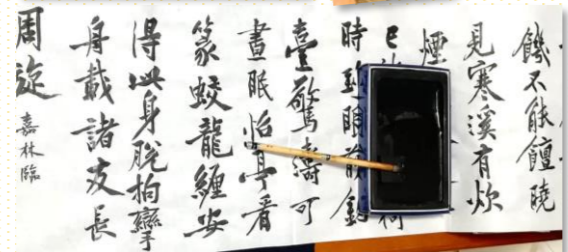 饑不能饘曉
見寒溪有炊
煙
已
何
時到眼前釣
臺驚濤可
晝眠怡亭看
篆蛟龍纏安
得此身脫拘攣
舟載諸友長
周旋
嘉林臨